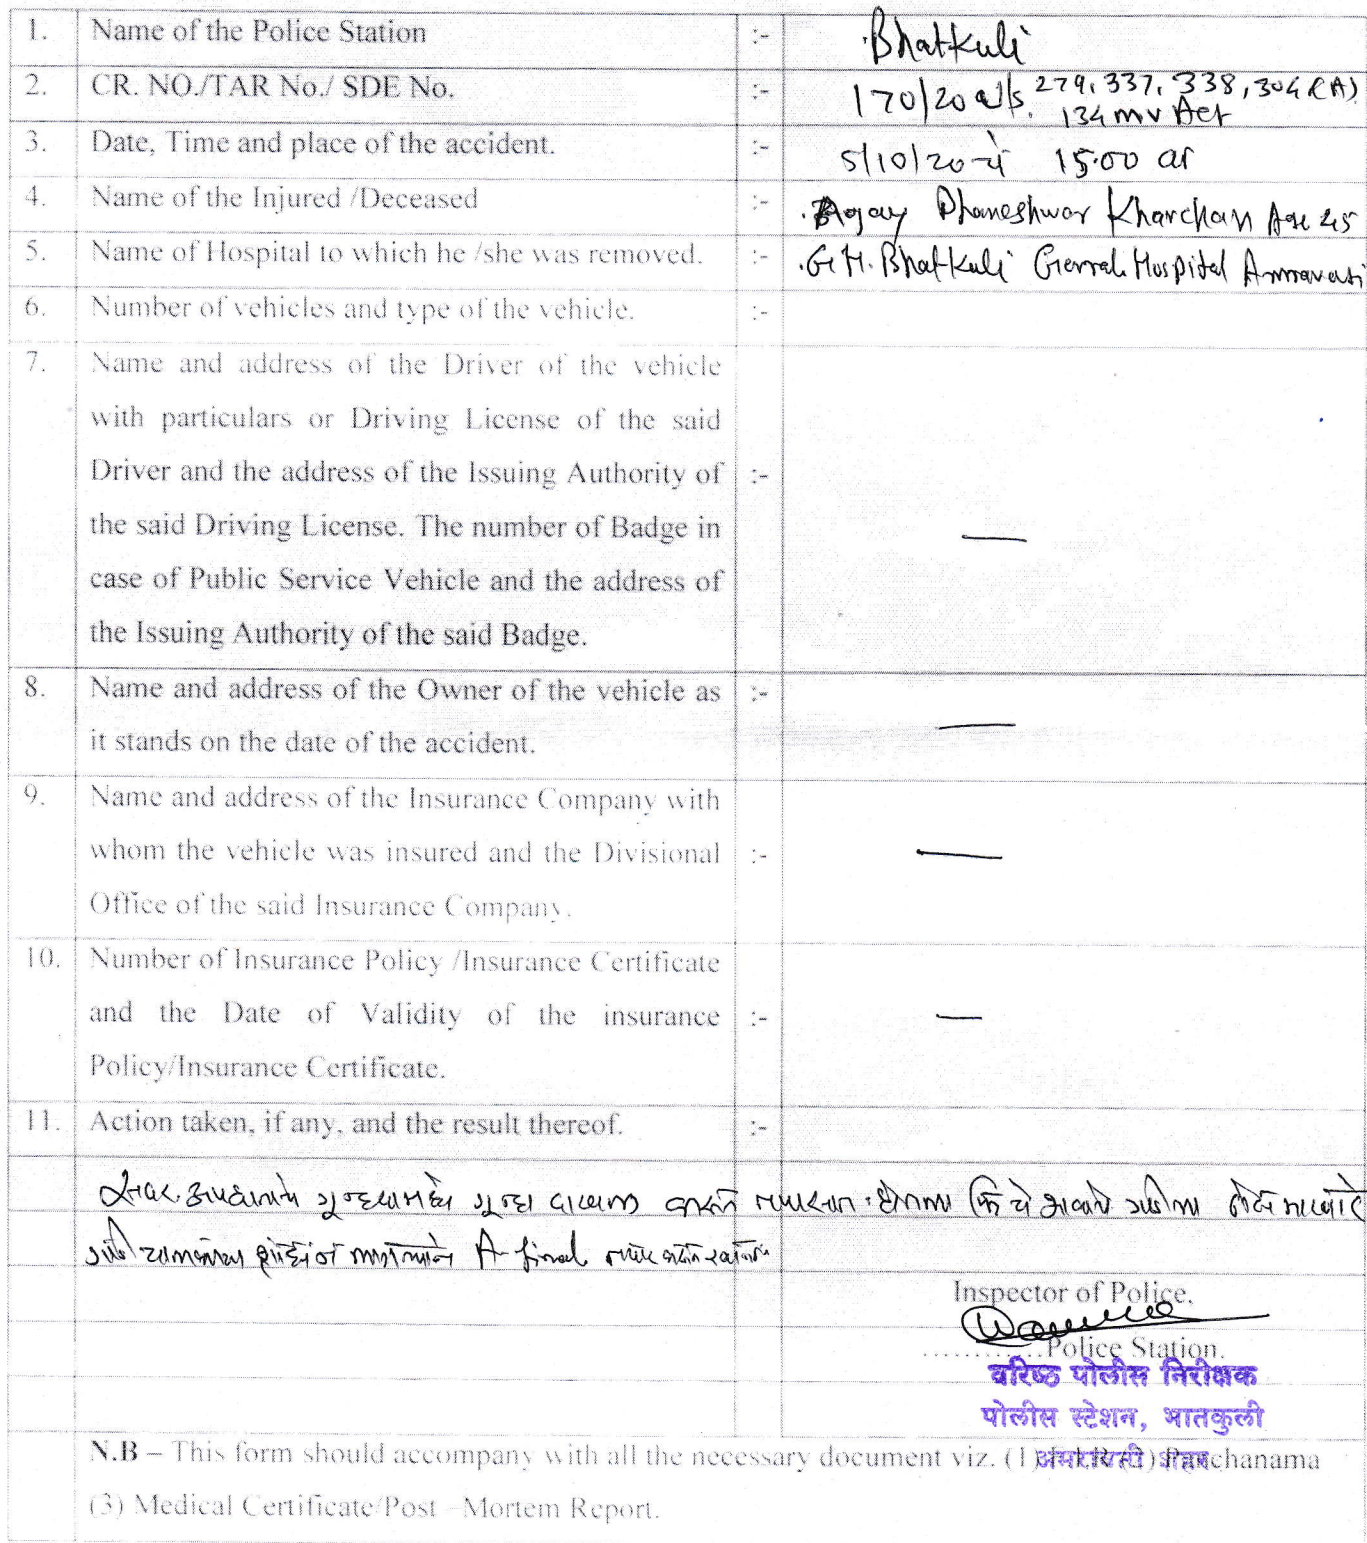 1. Name of the Police Station :- Bhatkuli
2. CR. NO./TAR No./ SDE No. :- 170/20 u/s. 279, 337, 338, 304 (A)
134 mv Act
3. Date, Time and place of the accident. :- 5/10/20 चे 15.00 वा
4. Name of the Injured /Deceased :- Ajay Dhaneshwar Kharchan Age 45
5. Name of Hospital to which he /she was removed. :- G.H. Bhatkuli General Hospital Amravati
6. Number of vehicles and type of the vehicle. :-
7. Name and address of the Driver of the vehicle
with particulars or Driving License of the said
Driver and the address of the Issuing Authority of :-
the said Driving License. The number of Badge in —
case of Public Service Vehicle and the address of
the Issuing Authority of the said Badge.
8. Name and address of the Owner of the vehicle as :-
it stands on the date of the accident. —
9. Name and address of the Insurance Company with
whom the vehicle was insured and the Divisional :- —
Office of the said Insurance Company.
10. Number of Insurance Policy /Insurance Certificate
and the Date of Validity of the insurance :- —
Policy/Insurance Certificate.
11. Action taken, if any, and the result thereof. :-
A final
Inspector of Police,
.............Police Station.
वरिष्ठ पोलीस निरीक्षक
पोलीस स्टेशन, भातकुली
अमरावती शहर
N.B – This form should accompany with all the necessary document viz. (1) F.I.R (2) Panchanama
(3) Medical Certificate/Post –Mortem Report.